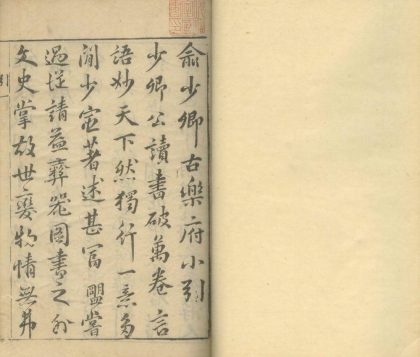 俞少卿古樂府小引
少卿公讀書破萬卷言
語妙天下然獨行一意多
閒少室著述甚富盟嘗
過從請益彝器圖書之外
文史掌故世變物情無弗
引
一